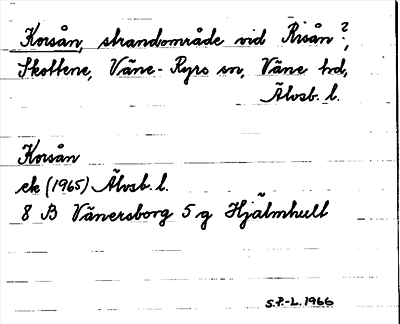 Korsån, strandområde vid Risån?,
Skottene, Väne-Ryrs sn, Väne hd,
Älvsb. l.
Korsån
ek (1965) Älvsb. l.
8 B Vänersborg 5 g Hjälmhult
S.P.-L. 1966